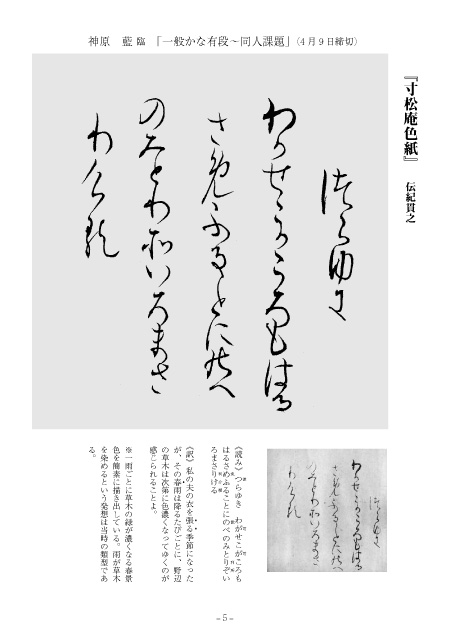 神原 藍 臨 「一般かな有段～同人課題」(4月9日締切)
『寸松庵色紙』 伝紀貫之
つらゆき
わかせこかころもはる
さめふることにのへ
のみとりそいろまさ
りける
《読み》つらゆき わがせこがころも
はるさめふることにのべのみとりぞい
ろまさりける
《訳》私の夫の衣を張る季節になった
が、その春雨は降るたびごとに、野辺
の草木は次第に色濃くなってゆくのが
感じられることよ。
※一雨ごとに草木の緑が濃くなる春景
色を簡素に描き出している。雨が草木
を染めるという発想は当時の類型であ
る。
－5－